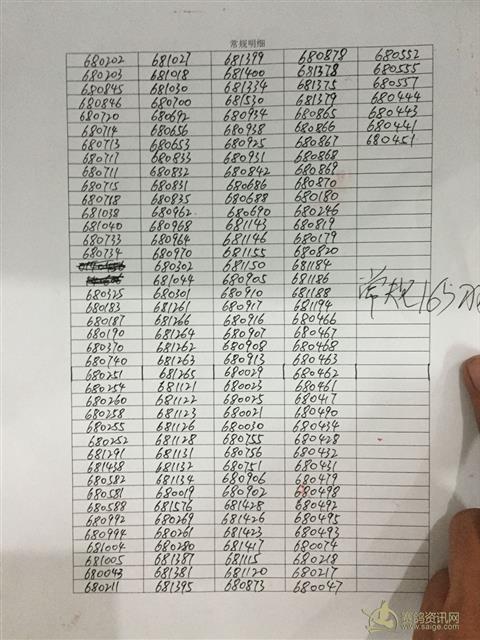 常规明细
680202 681027 681399 680878 680552
680203 681018 681400 681378 680555
680845 681030 681334 681375 680557
680846 680700 681530 681379 680444
680720 680692 680934 680865 680443
680714 680656 680938 680866 680441
680713 680653 680925 680867 680451
680717 680833 680931 680868
680711 680832 680842 680869
680715 680831 680686 680870
680718 680835 680688 680180
681038 680962 680690 680246
681040 680968 681143 680819
680733 680964 681146 680179
680734 680970 681155 680820
680302 681150 681184
681044 680905 681186
680325 680301 680910 681188
680183 681261 680917 681194
680187 681266 680916 680466
680190 681264 680907 680467
680370 681262 680908 680468
680740 681263 680913 680463
680251 681265 680029 680462
680254 681121 680023 680461
680260 681122 680025 680417
680258 681123 680021 680490
680255 681126 680030 680434
680252 681128 680755 680428
681291 681131 680756 680432
681438 681132 680751 680431
680582 681134 680906 680479
680581 680019 680902 680498
680588 681576 681428 680492
680992 680269 681426 680495
680994 680261 681423 680493
681004 680280 681417 680074
681005 681387 681115 680218
680043 681381 681120 680217
680211 681395 680873 680047
常规165羽
赛鸽资讯网
www.saige.com